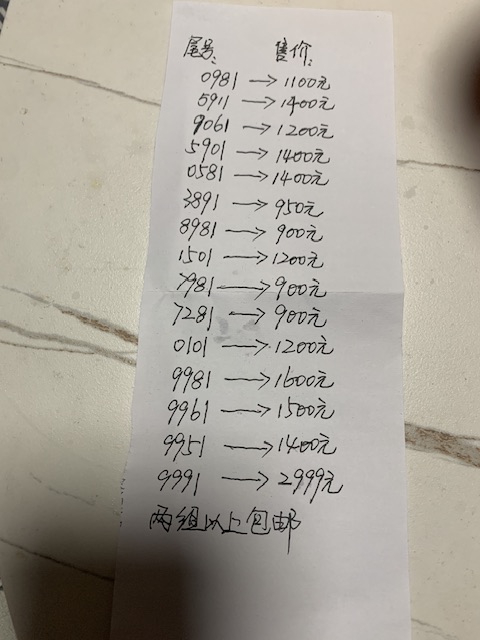 尾号: 售价:
0981→1100元
5911→1400元
9061→1200元
5901→1400元
0581→1400元
3891→950元
8981→900元
1501→1200元
7981→900元
7281→900元
0101→1200元
9981→1600元
9961→1500元
9951→1400元
9991→2999元
两组以上包邮